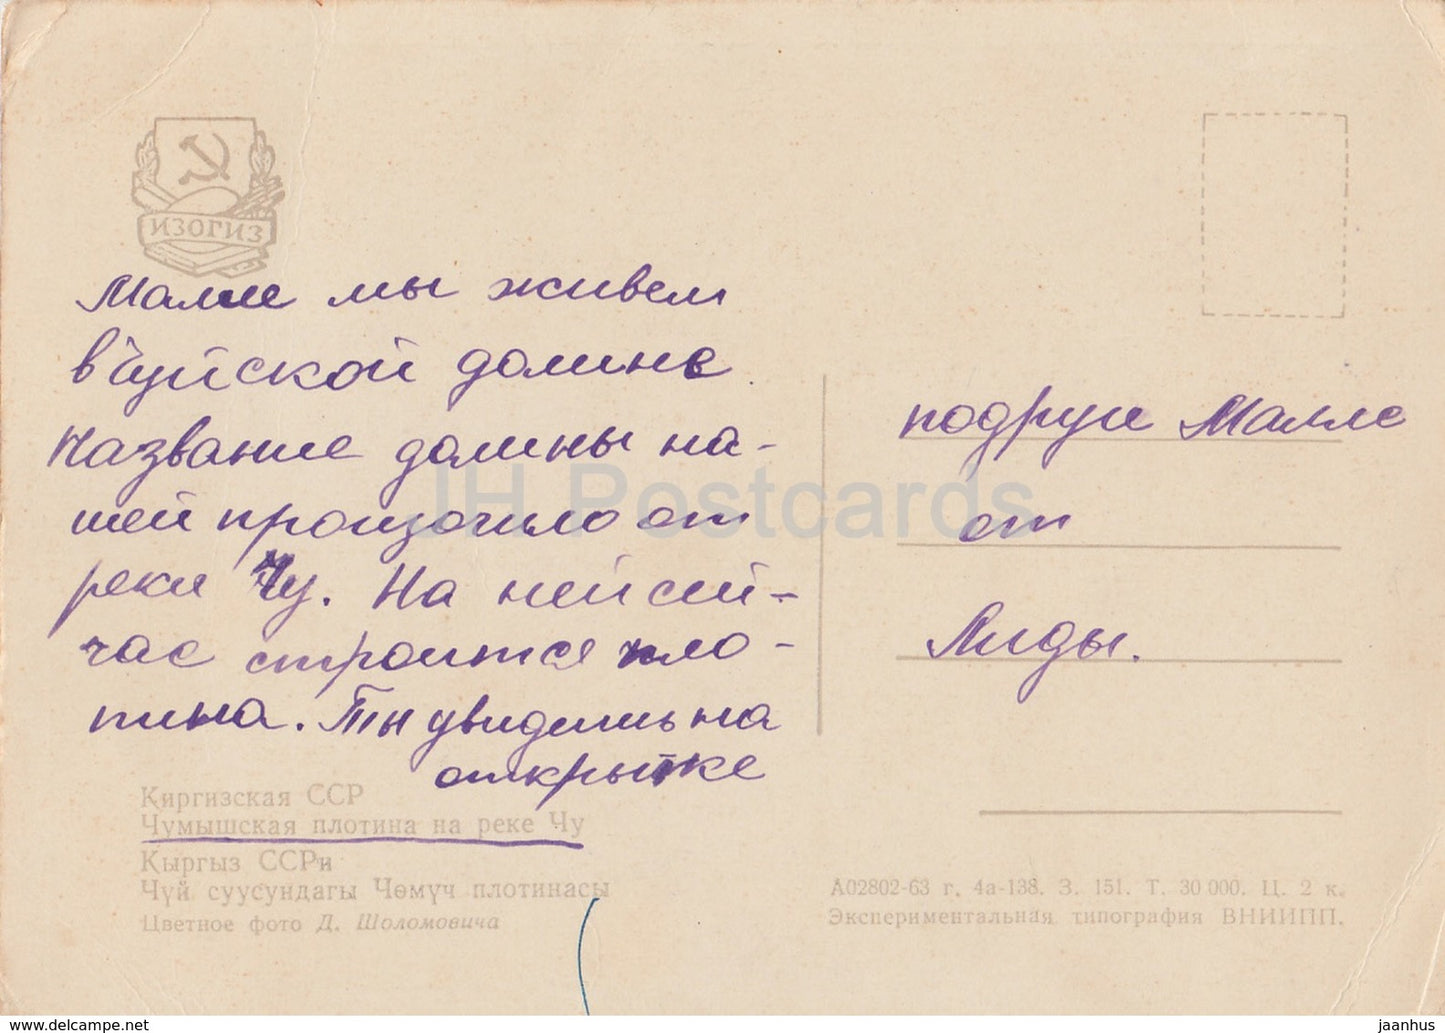 ИЗОГИЗ
Малле мы живем
в Чуйской долине
Название долины на-
шей произошло от
реки Чу. На ней сей-
час строится пло-
тина. Ты увидишь на
открытке
Киргизская ССР
Чумышская плотина на реке Чу
Кыргыз ССРи
Чүй суусундагы Чөмүч плотинасы
Цветное фото Д. Шоломовича
подруги Малле
от
Лиды.
А02802-63 г. 4а-138. З. 151. Т. 30 000. Ц. 2 к.
Экспериментальная типография ВНИИПП.
JH Postcards
https://www.delcampe.net
jaanhus